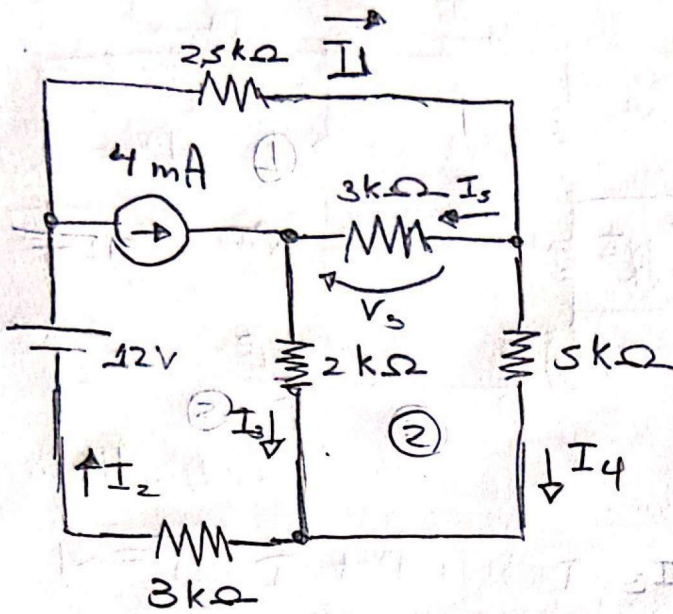 I1
2,5kΩ
①
4 mA
3kΩ I5
V5
12V
2kΩ
5kΩ
②
I3
②
I2
I4
3kΩ